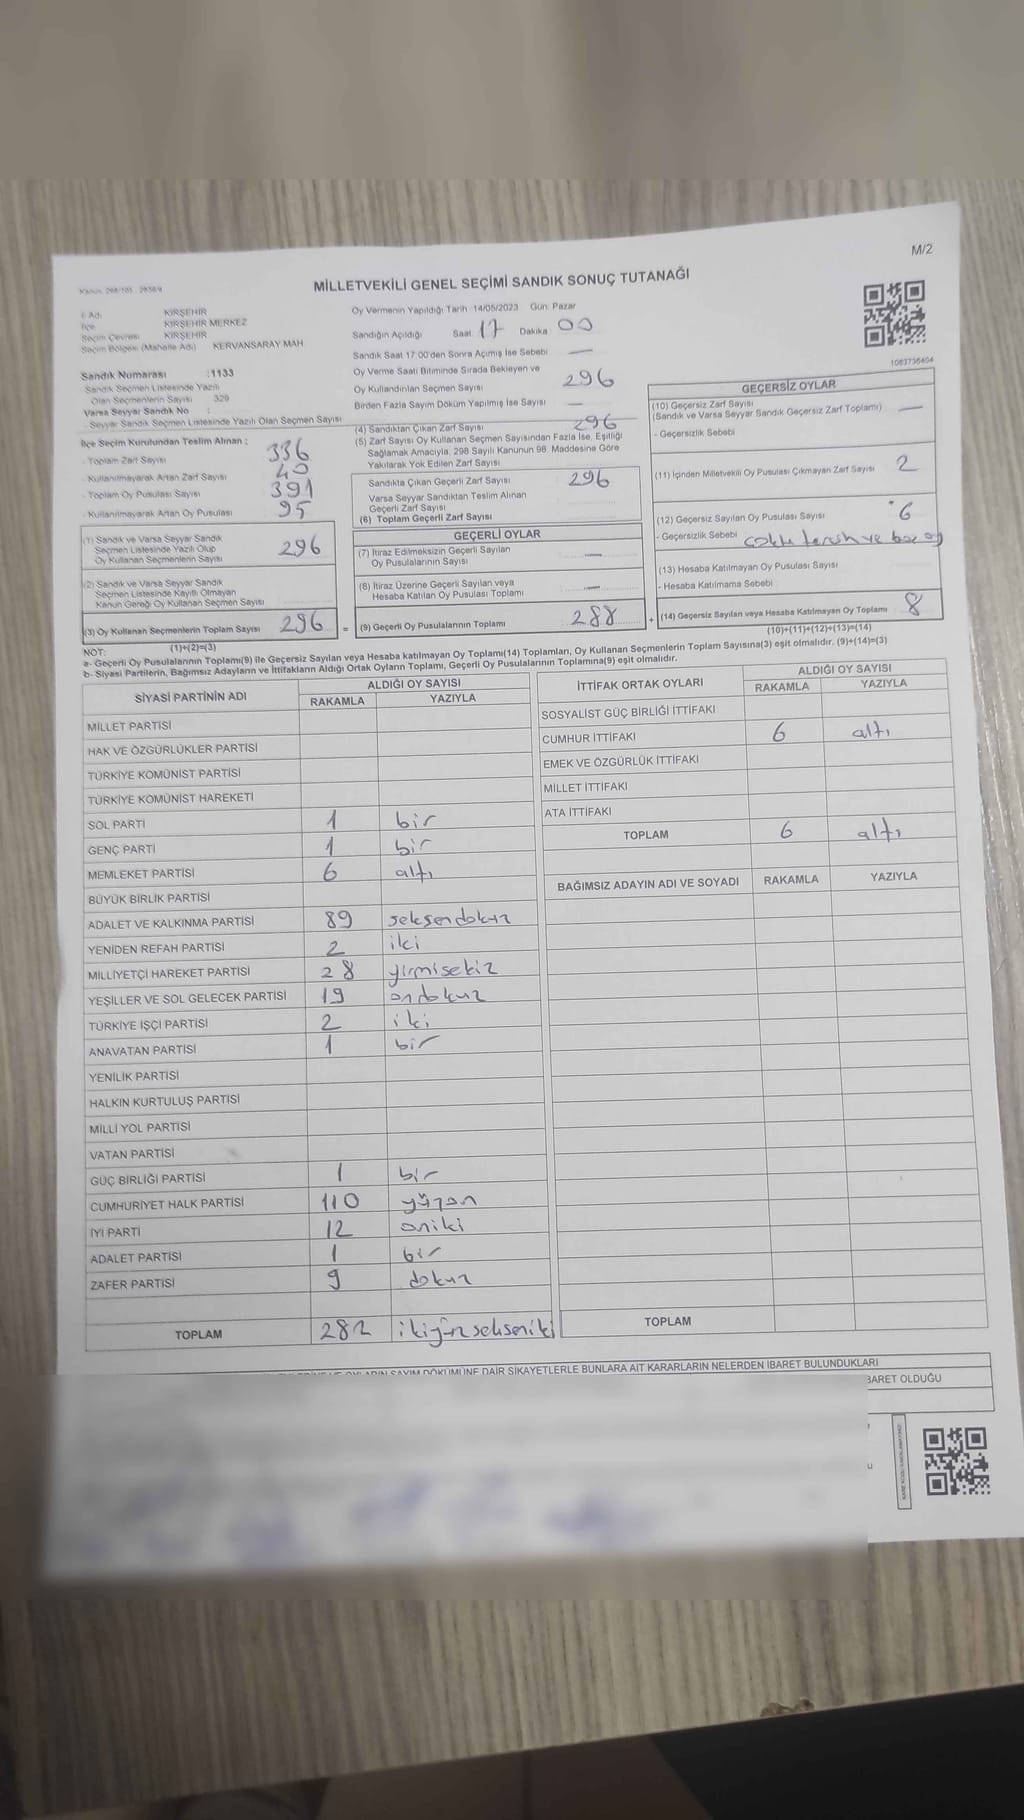 M/2
MİLLETVEKİLİ GENEL SEÇİMİ SANDIK SONUÇ TUTANAĞI
İl Adı KIRŞEHİR
İlçe KIRŞEHİR MERKEZ
Seçim Çevresi KIRŞEHİR
Seçim Bölgesi (Mahalle Adı) KERVANSARAY MAH
Sandık Numarası :1133
Sandık Seçmen Listesinde Yazılı
Olan Seçmenlerin Sayısı 329
Varsa Seyyar Sandık No :
- Seyyar Sandık Seçmen Listesinde Yazılı Olan Seçmen Sayısı
İlçe Seçim Kurulundan Teslim Alınan ;
- Toplam Zarf Sayısı 336
- Kullanılmayarak Artan Zarf Sayısı 40
- Toplam Oy Pusulası Sayısı 391
- Kullanılmayarak Artan Oy Pusulası 95
(1) Sandık ve Varsa Seyyar Sandık
Seçmen Listesinde Yazılı Olup
Oy Kullanan Seçmenlerin Sayısı 296
(2) Sandık ve Varsa Seyyar Sandık
Seçmen Listesinde Kayıtlı Olmayan
Kanun Gereği Oy Kullanan Seçmen Sayısı
(3) Oy Kullanan Seçmenlerin Toplam Sayısı 296 =
(1)+(2)=(3)
Oy Vermenin Yapıldığı Tarih 14/05/2023 Gün: Pazar
Sandığın Açıldığı Saat: 17 Dakika 00
Sandık Saat 17:00'den Sonra Açılmış İse Sebebi —
Oy Verme Saati Bitiminde Sırada Bekleyen ve
Oy Kullandırılan Seçmen Sayısı 296
Birden Fazla Sayım Döküm Yapılmış İse Sayısı —
(4) Sandıktan Çıkan Zarf Sayısı 296
(5) Zarf Sayısı Oy Kullanan Seçmen Sayısından Fazla İse, Eşitliği
Sağlamak Amacıyla, 298 Sayılı Kanunun 98. Maddesine Göre
Yakılarak Yok Edilen Zarf Sayısı
Sandıkta Çıkan Geçerli Zarf Sayısı 296
Varsa Seyyar Sandıktan Teslim Alınan
Geçerli Zarf Sayısı
(6) Toplam Geçerli Zarf Sayısı
GEÇERLİ OYLAR
(7) İtiraz Edilmeksizin Geçerli Sayılan
Oy Pusulalarının Sayısı —
(8) İtiraz Üzerine Geçerli Sayılan veya
Hesaba Katılan Oy Pusulası Toplamı —
(9) Geçerli Oy Pusulalarının Toplamı 288 +
1083736404
GEÇERSİZ OYLAR
(10) Geçersiz Zarf Sayısı
(Sandık ve Varsa Seyyar Sandık Geçersiz Zarf Toplamı) —
- Geçersizlik Sebebi
(11) İçinden Milletvekili Oy Pusulası Çıkmayan Zarf Sayısı 2
(12) Geçersiz Sayılan Oy Pusulası Sayısı 6
- Geçersizlik Sebebi çoklu tercih ve boş oy
(13) Hesaba Katılmayan Oy Pusulası Sayısı
- Hesaba Katılmama Sebebi
(14) Geçersiz Sayılan veya Hesaba Katılmayan Oy Toplamı 8
(10)+(11)+(12)+(13)=(14)
NOT:
a- Geçerli Oy Pusulalarının Toplamı(9) ile Geçersiz Sayılan veya Hesaba Katılmayan Oy Toplamı(14) Toplamları, Oy Kullanan Seçmenlerin Toplam Sayısına(3) eşit olmalıdır. (9)+(14)=(3)
b- Siyasi Partilerin, Bağımsız Adayların ve İttifakların Aldığı Ortak Oyların Toplamı, Geçerli Oy Pusulalarının Toplamına(9) eşit olmalıdır.
SİYASİ PARTİNİN ADI ALDIĞI OY SAYISI
RAKAMLA YAZIYLA
MİLLET PARTİSİ
HAK VE ÖZGÜRLÜKLER PARTİSİ
TÜRKİYE KOMÜNİST PARTİSİ
TÜRKİYE KOMÜNİST HAREKETİ
SOL PARTİ 1 bir
GENÇ PARTİ 1 bir
MEMLEKET PARTİSİ 6 altı
BÜYÜK BİRLİK PARTİSİ
ADALET VE KALKINMA PARTİSİ 89 seksendokuz
YENİDEN REFAH PARTİSİ 2 iki
MİLLİYETÇİ HAREKET PARTİSİ 28 yirmisekiz
YEŞİLLER VE SOL GELECEK PARTİSİ 19 ondokuz
TÜRKİYE İŞÇİ PARTİSİ 2 iki
ANAVATAN PARTİSİ 1 bir
YENİLİK PARTİSİ
HALKIN KURTULUŞ PARTİSİ
MİLLİ YOL PARTİSİ
VATAN PARTİSİ
GÜÇ BİRLİĞİ PARTİSİ 1 bir
CUMHURİYET HALK PARTİSİ 110 yüzon
İYİ PARTİ 12 oniki
ADALET PARTİSİ 1 bir
ZAFER PARTİSİ 9 dokuz
TOPLAM 282 ikiyüzsekseniki
İTTİFAK ORTAK OYLARI ALDIĞI OY SAYISI
RAKAMLA YAZIYLA
SOSYALİST GÜÇ BİRLİĞİ İTTİFAKI
CUMHUR İTTİFAKI 6 altı
EMEK VE ÖZGÜRLÜK İTTİFAKI
MİLLET İTTİFAKI
ATA İTTİFAKI
TOPLAM 6 altı
BAĞIMSIZ ADAYIN ADI VE SOYADI RAKAMLA YAZIYLA
TOPLAM
SAYIM DÖKÜMÜNE DAİR ŞİKAYETLERLE BUNLARA AİT KARARLARIN NELERDEN İBARET BULUNDUKLARI
BARET OLDUĞU